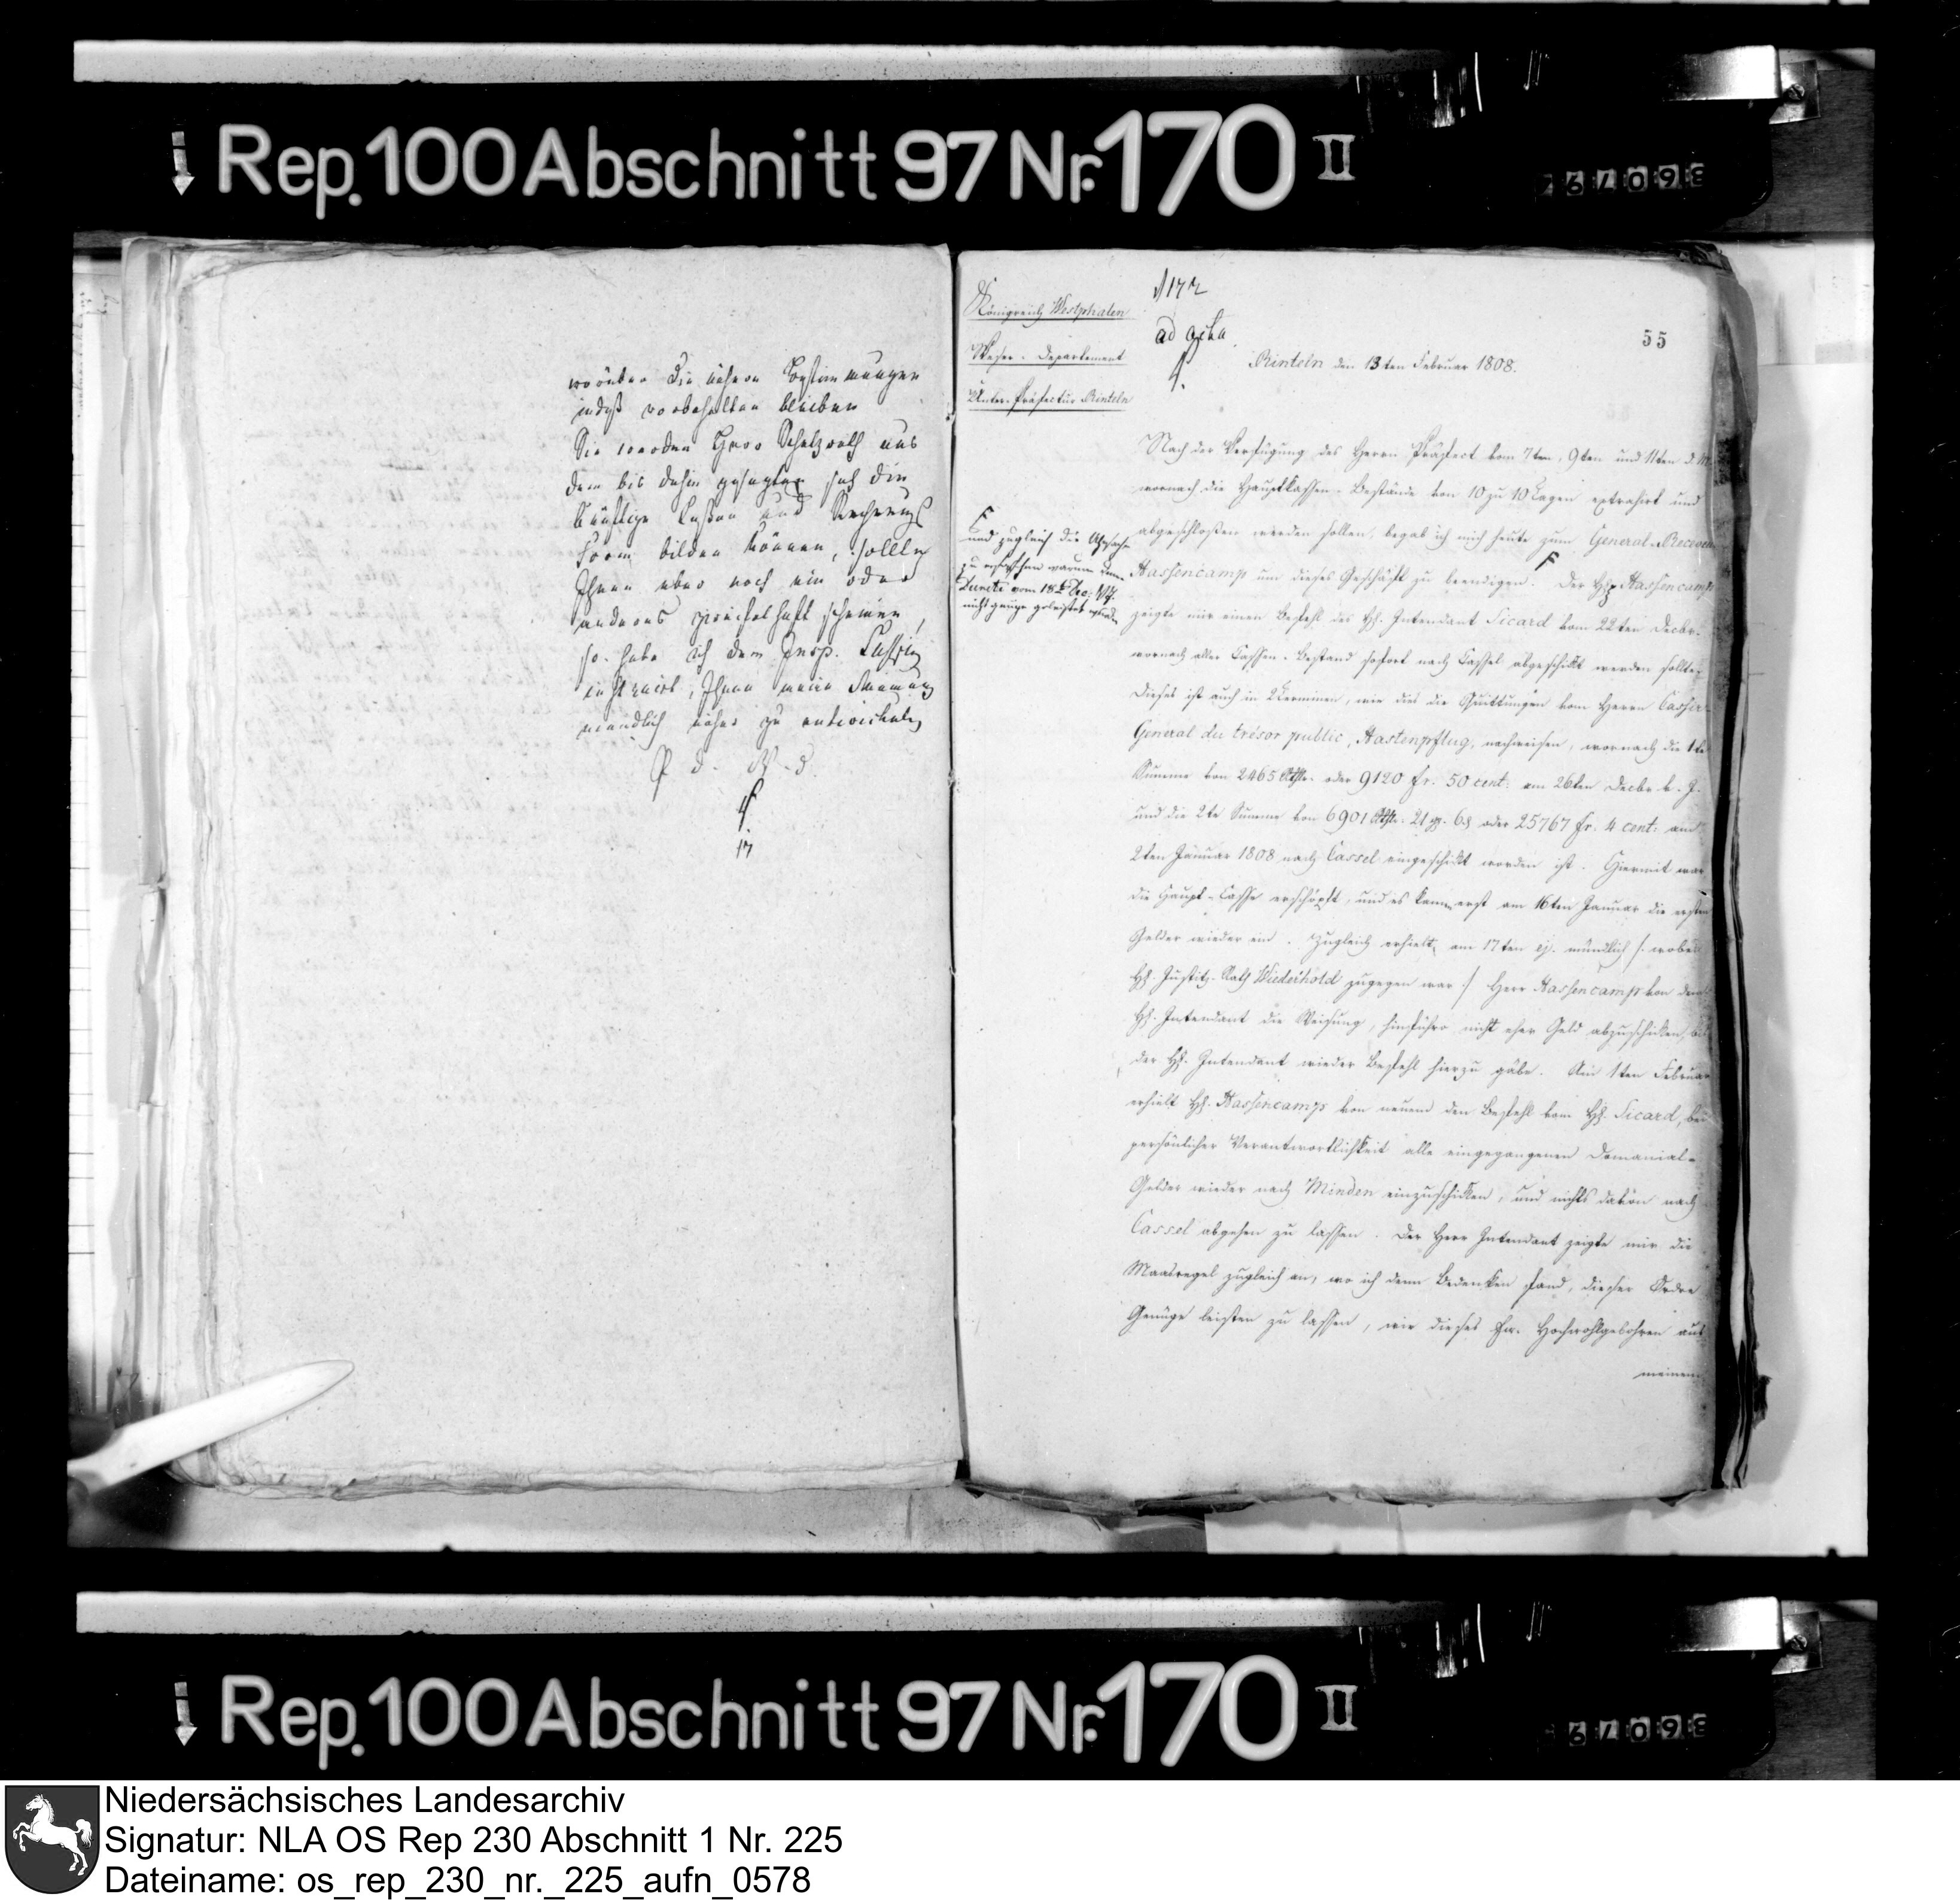 Rep. 100 Abschnitt 97 Nr. 170 II
worüber die nähern Bestimmungen
indeß vorbehalten bleiben
Sie werden Herr Schatzrath aus
dem bis dahin gesagten sich die
künftige Cassen und Rechnungs
Form bilden können, sollte
Ihnen aber noch ein oder
anderes zweifelhaft scheinen,
so habe ich dem Insp.
instruirt, Ihnen meine Meinung
mündlich näher zu entwickeln
17
Königreich Westphalen
Weser-Departement
Unter-Präfectur Rinteln
ad acta
55
Rinteln den 13ten Februar 1808.
Nach der Verfügung des Herrn Präfect vom 7ten, 9ten und 11ten d. M.
wornach die Hauptkassen-Bestände von 10 zu 10 Tagen extrahirt und
abgeschloßen werden sollen, begab ich mich heute zum General-Receveur
Hassencamp um dieses Geschäft zu beendigen. F Der Hh. Hassencamp
F
und zugleich die Ursache
zu erforschen warum dem
Decrete vom 18t Dec.
nicht genüge geleistet
zeigte mir einen Befehl des Hh. Intendant Sicard vom 22ten Decbr.
wornach aller Cassen-Bestand sofort nach Cassel abgeschickt werden sollte;
Dieses ist auch in 2 Terminen, wie dies die Quittungen vom Herrn Cassier
General du trésor public, Hastenpflug, nachweisen, wornach die 1te
Summe von 2465 Rthlr. oder 9120 fr. 50 cent: am 26ten Decbr. v. J.
und die 2te Summe von 6901 Rthlr. 21 gr. 6 d oder 25767 fr. 4 cent: am
2ten Januar 1808 nach Cassel eingeschickt worden ist. Hiermit war
die Haupt-Casse erschöpft, und es kamen erst am 16ten Januar die ersten
Gelder wieder ein. Zugleich erhielt am 17ten ej. mündlich /: wobei
Hh. Justitz-Rath Wiederhold zugegen war :/ Herr Hassencamp von dem
Hh. Intendant die Weisung, hinführo nicht eher Geld abzuschicken, bis
der Hh. Intendant wieder Befehl hierzu gäbe. Am 1ten Februar
erhielt Hh. Hassencamp von neuem den Befehl vom Hh. Sicard, bei
persönlicher Verantwortlichkeit alle eingegangenen Domanial-
Gelder wieder nach Minden einzuschicken, und nichts davon nach
Cassel abgehen zu lassen. Der Herr Intendant zeigte mir die
Maasregel zugleich an, wo ich denn Bedenken fand, dieser Ordre
Genüge leisten zu lassen, wie dieses Ew. Hochwohlgebohren aus
meinem
Rep. 100 Abschnitt 97 Nr. 170 II
Niedersächsisches Landesarchiv
Signatur: NLA OS Rep 230 Abschnitt 1 Nr. 225
Dateiname: os_rep_230_nr._225_aufn_0578